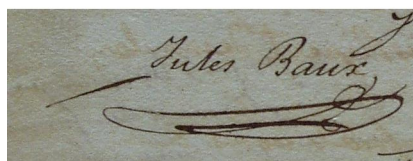 Jules Baux